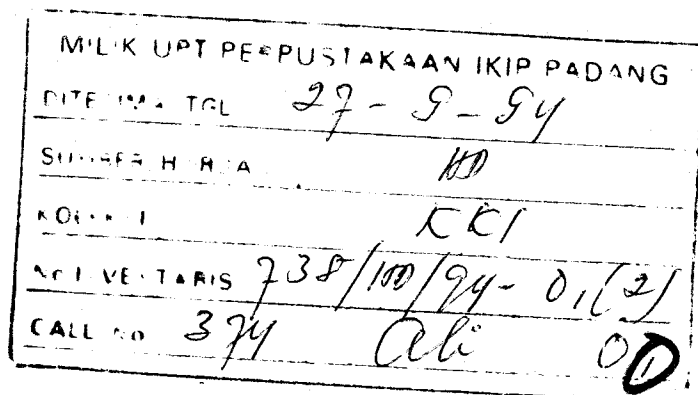 MILIK UPT PERPUSTAKAAN IKIP PADANG
DITERIMA TGL 27 - 9 - 94
SUMBER HARGA HD
KOLEKSI KKI
No INVENTARIS 738/HD/94 - 01(2)
CALL No 374 Ali 01